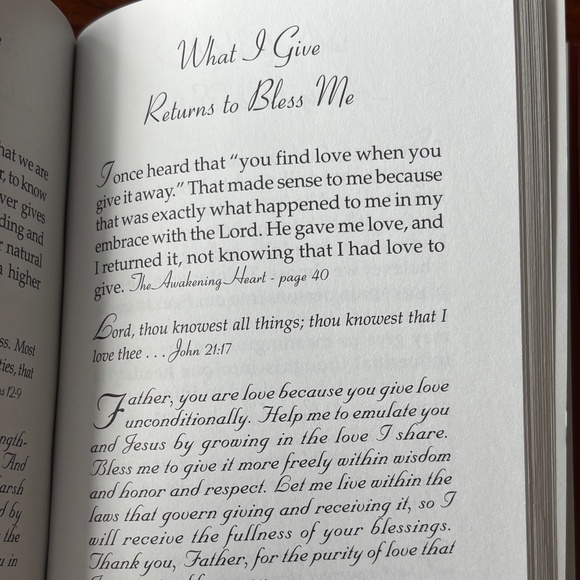 hat we are
, to know
ver gives
ding and
natural
higher
ss. Most
ties, that
12:9
ngth-
And
arsh
d by
the
u in
What I Give
Returns to Bless Me
I once heard that “you find love when you
give it away.” That made sense to me because
that was exactly what happened to me in my
embrace with the Lord. He gave me love, and
I returned it, not knowing that I had love to
give. The Awakening Heart - page 40
Lord, thou knowest all things; thou knowest that I
love thee . . . John 21:17
Father, you are love because you give love
unconditionally. Help me to emulate you
and Jesus by growing in the love I share.
Bless me to give it more freely within wisdom
and honor and respect. Let me live within the
laws that govern giving and receiving it, so I
will receive the fullness of your blessings.
Thank you, Father, for the purity of love that